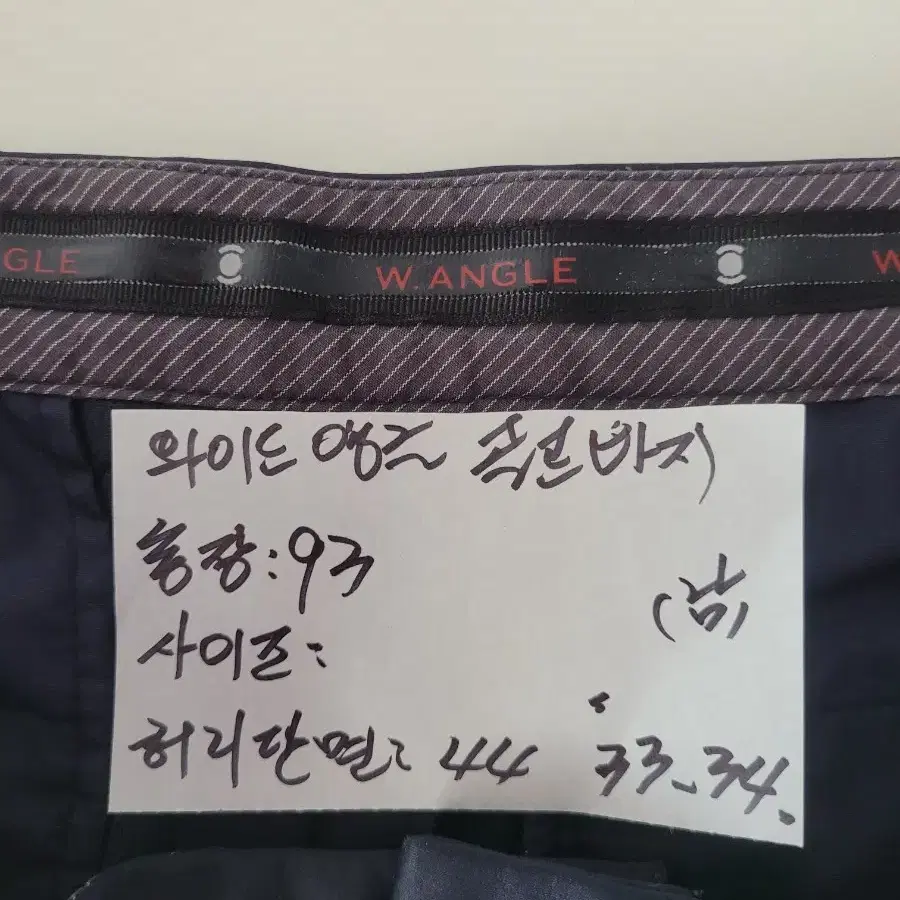 GLE W. ANGLE W
와이드 앵글 손본바지
총장: 93
(남)
사이즈:
허리단면: 44 33-34.